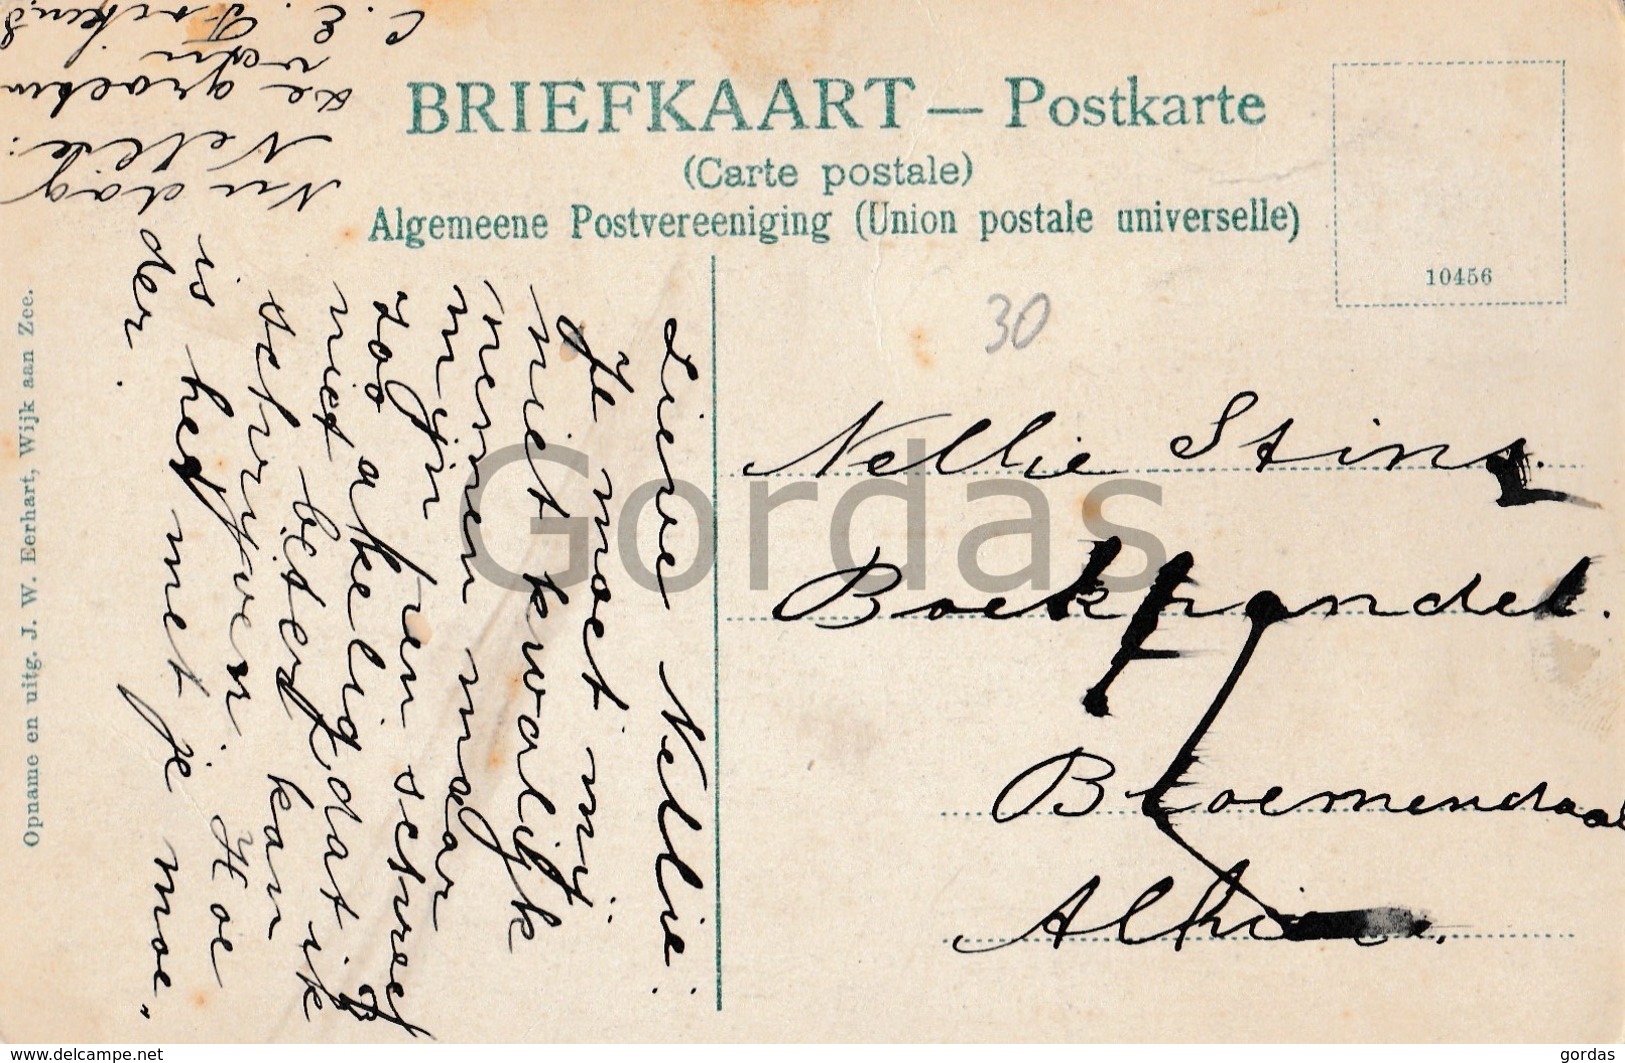 BRIEFKAART — Postkarte
(Carte postale)
Algemeene Postvereeniging (Union postale universelle)
10456
30
Nellie Stins.
Boekhandel.
Bloemendaal
Alhier.
Lieve Nellie:
Je moet mij
niet kwalijk
nemen maar
mijn pen schreef
zoo akelig dat ik
niet beter kan
schrijven. Hoe
is het met je moe„
der.
Nu dag
Nellie:
de groeten
van
C. E.
Opname en uitg. J. W. Eerhart, Wijk aan Zee.
Gordas
www.delcampe.net
gordas